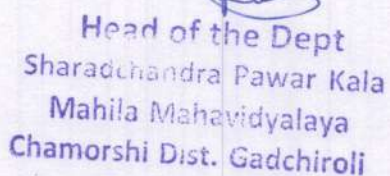 Head of the Dept
Sharadchandra Pawar Kala
Mahila Mahavidyalaya
Chamorshi Dist. Gadchiroli